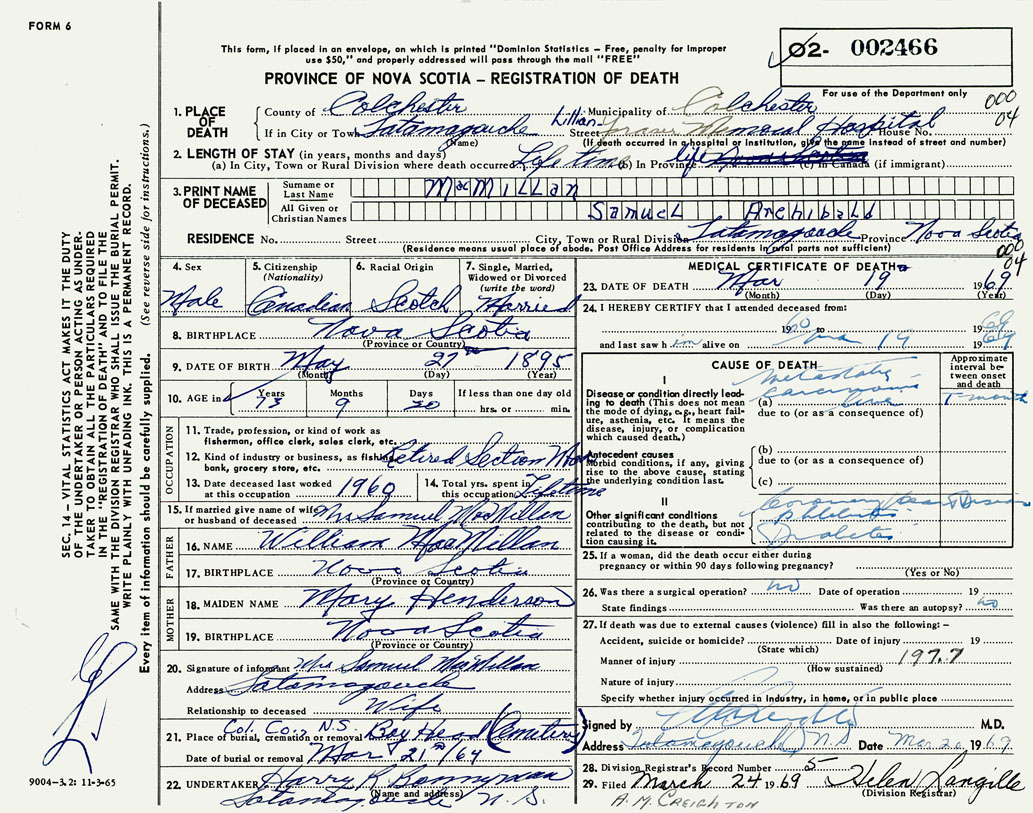 FORM 6
This form, if placed in an envelope, on which is printed "Dominion Statistics – Free, penalty for improper
use $50," and properly addressed will pass through the mail "FREE"
02- 002466
For use of the Department only
PROVINCE OF NOVA SCOTIA – REGISTRATION OF DEATH
000
04
1. PLACE OF DEATH
County of Colchester Municipality of Colchester
If in City or Town Tatamagouche (Name) Street Lillian Fraser Memorial Hospital House No.
(If death occurred in a hospital or institution, give the name instead of street and number)
2. LENGTH OF STAY (in years, months and days)
(a) In City, Town or Rural Division where death occurred Lifetime (b) In Province life (c) In Canada (if immigrant)
3. PRINT NAME OF DECEASED
Surname or Last Name MacMillan
All Given or Christian Names Samuel Archibald
RESIDENCE No. Street City, Town or Rural Division Tatamagouche Province Nova Scotia
(Residence means usual place of abode. Post Office Address for residents in rural parts not sufficient)
000
04
4. Sex Male
5. Citizenship (Nationality) Canadian
6. Racial Origin Scotch
7. Single, Married, Widowed or Divorced (write the word) Married
8. BIRTHPLACE Nova Scotia
(Province or Country)
9. DATE OF BIRTH May 27 1895
(Month) (Day) (Year)
10. AGE in Years 73 Months 9 Days If less than one day old hrs. or min.
OCCUPATION
11. Trade, profession, or kind of work as
fisherman, office clerk, sales clerk, etc.
12. Kind of industry or business, as fishing,
bank, grocery store, etc. Retired Section Man
13. Date deceased last worked at this occupation 1960
14. Total yrs. spent in this occupation Lifetime
15. If married give name of wife or husband of deceased Mrs Samuel MacMillan
FATHER
16. NAME William MacMillan
17. BIRTHPLACE Nova Scotia
(Province or Country)
MOTHER
18. MAIDEN NAME Mary Henderson
19. BIRTHPLACE Nova Scotia
(Province or Country)
20. Signature of informant Mrs Samuel MacMillan
Address Tatamagouche
Relationship to deceased Wife
Col. Co., N.S.
21. Place of burial, cremation or removal Bay Head (Cemetery)
Date of burial or removal Mar 21st/69
22. UNDERTAKER Harry R Bonnyman
(Name and address)
Tatamagouche N.S.
MEDICAL CERTIFICATE OF DEATH
23. DATE OF DEATH Mar 19 1969
(Month) (Day) (Year)
24. I HEREBY CERTIFY that I attended deceased from:
19 to 1969
and last saw him alive on Mar 19 1969
CAUSE OF DEATH
Approximate interval between onset and death
I
Disease or condition directly leading to death (This does not mean the mode of dying, e.g., heart failure, asthenia, etc. It means the disease, injury, or complication which caused death.)
(a)
due to (or as a consequence of)
Antecedent causes
Morbid conditions, if any, giving rise to the above cause, stating the underlying condition last.
(b)
due to (or as a consequence of)
(c)
II
Other significant conditions contributing to the death, but not related to the disease or condition causing it.
Coronary
Phlebitis
Diabetes
25. If a woman, did the death occur either during
pregnancy or within 90 days following pregnancy?
(Yes or No)
26. Was there a surgical operation? no Date of operation 19
State findings Was there an autopsy? no
27. If death was due to external causes (violence) fill in also the following: –
Accident, suicide or homicide? Date of injury 19
(State which)
Manner of injury 197.7
(How sustained)
Nature of injury
Specify whether injury occurred in Industry, in home, or in public place
Signed by M.D.
Address Tatamagouche N S Date Mar 20 1969
28. Division Registrar's Record Number 5
29. Filed March 24 1969 Helen Langille
(Division Registrar)
A. M. CREIGHTON
SEC. 14 – VITAL STATISTICS ACT MAKES IT THE DUTY
OF THE UNDERTAKER OR PERSON ACTING AS UNDER-
TAKER TO OBTAIN ALL THE PARTICULARS REQUIRED
IN THE "REGISTRATION OF DEATH" AND TO FILE THE
SAME WITH THE DIVISION REGISTRAR WHO SHALL ISSUE THE BURIAL PERMIT.
WRITE PLAINLY WITH UNFADING INK. THIS IS A PERMANENT RECORD.
Every item of information should be carefully supplied. (See reverse side for instructions.)
9004–3.2: 11-3-65